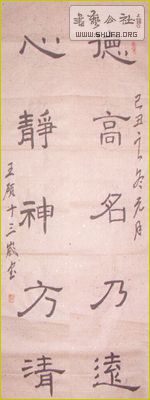 書藝公社
www.SHUFA.org
己丑之冬元月
德高名乃遠
心靜神方清
王頎十三歲書